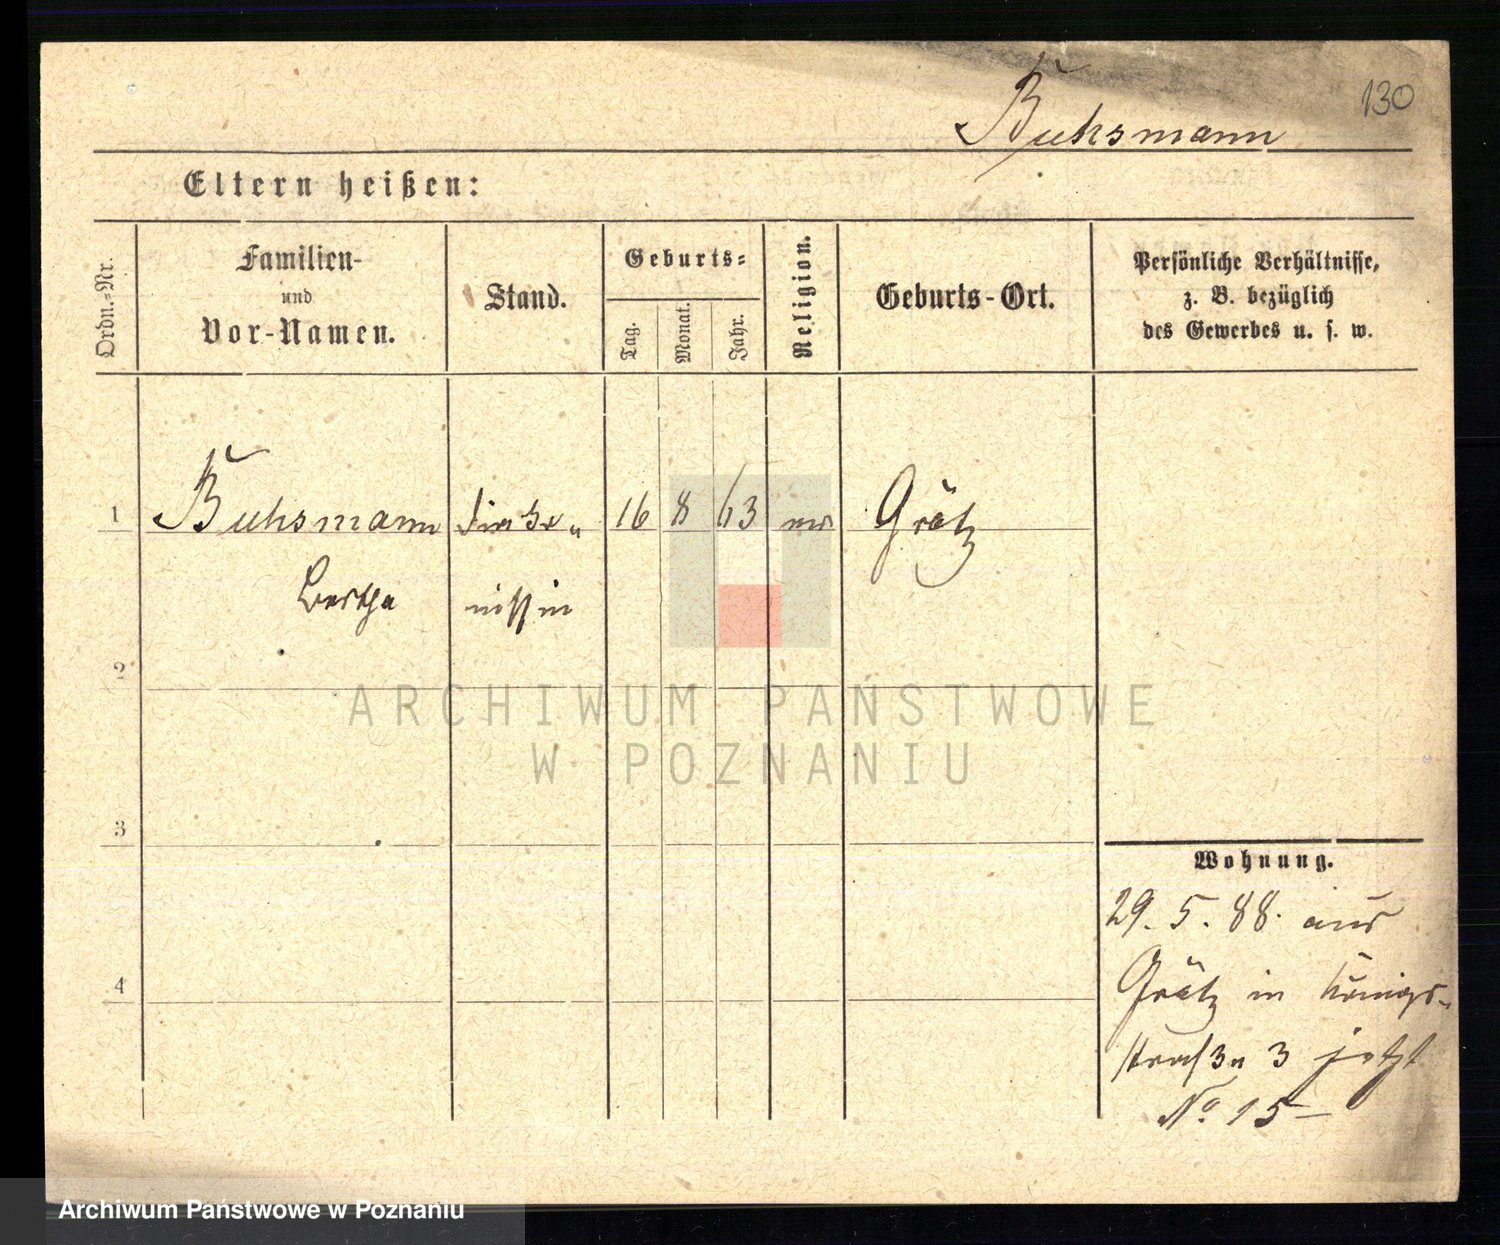 130
Buhsmann
Eltern heißen:
Ordn.=Nr.
Familien-
und
Vor-Namen.
Stand.
Geburts=
Tag.
Monat.
Jahr.
Religion.
Geburts-Ort.
Persönliche Verhältnisse,
z. B. bezüglich
des Gewerbes u. s. w.
1 Buhsmann 16 8 63 Grätz
Bertha
2
3
4
Wohnung.
29. 5. 88. aus
Grätz in Königs-
straße 3 jetzt
No 15
ARCHIWUM PAŃSTWOWE
W POZNANIU
Archiwum Państwowe w Poznaniu